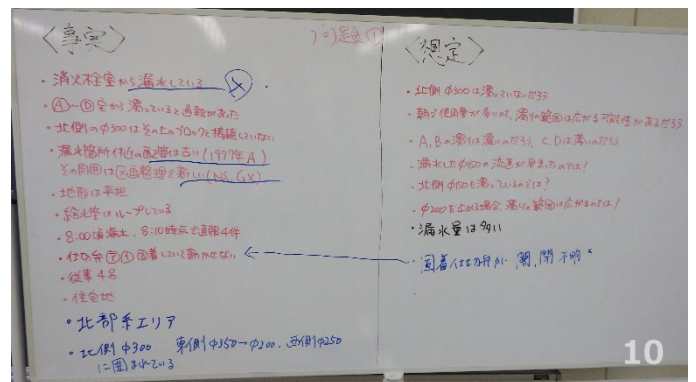 〈事実〉
課題①
・消火栓室から漏水している
・Ⓐ～Ⓓ全から濁っていると通報があった
・北側のφ300はその上のブロックと接続していない
・漏水箇所付近の配管は古い(1977年A)
その周囲は区画整理で新しい(NS,GX)
・地形は平坦
・給水管はループしている
・8:00頃漏水、8:10時点で通報4件
・仕切弁 固着していて動かせない
・従事4名
・住宅地
・北部系エリア
・北側φ300 東側φ350→φ200、西側φ250
に囲まれている
〈想定〉
・北側φ300は濁っていないだろう
・朝で使用量が多いので、濁りの範囲は広がる可能性があるだろう
・A,Bの濁りは濃いのだろう、C,Dは薄いのだろう
・漏水したφ150の流速が早まったのでは?
・北側φ150も濁っているのでは?
・φ200を止める場合、濁りの範囲は広がるのでは?
・漏水量は多い
・固着仕切弁が開、閉不明
10